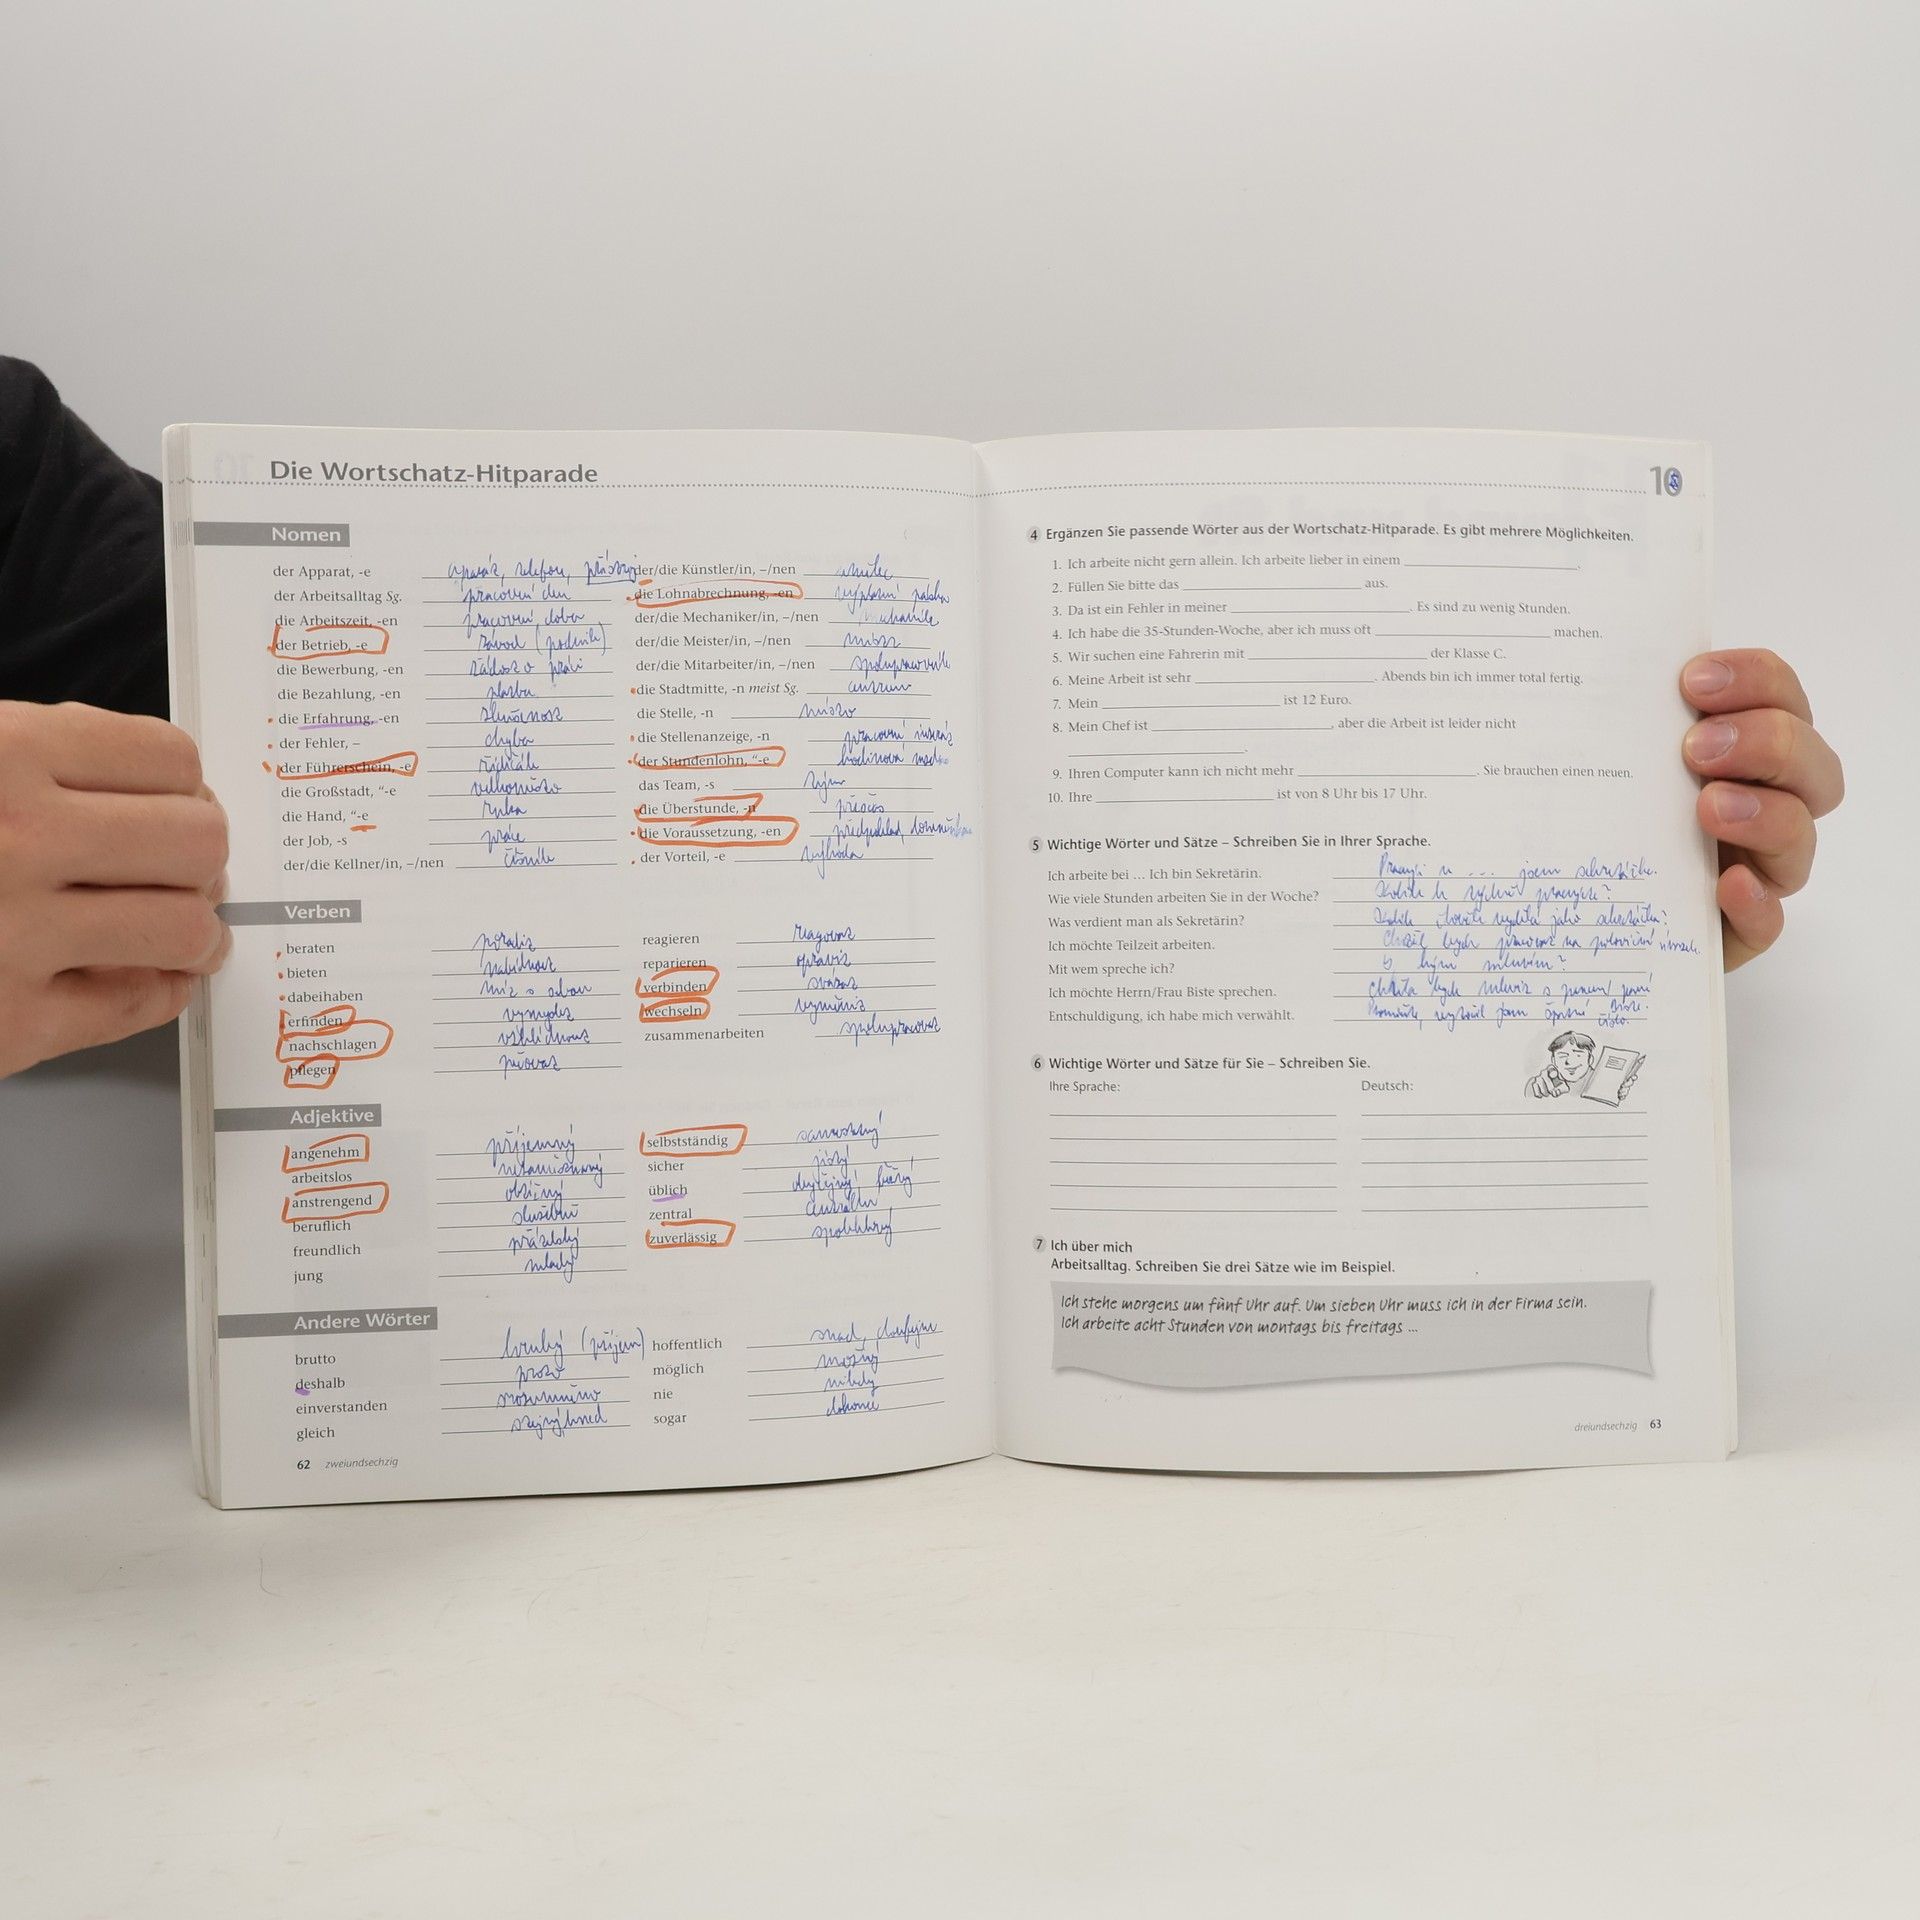 Die Wortschatz-Hitparade
Nomen
der Apparat, -e aparát, telefon, přístroj
der Arbeitsalltag Sg. pracovní den
die Arbeitszeit, -en pracovní doba
der Betrieb, -e závod (podnik)
die Bewerbung, -en žádost o práci
die Bezahlung, -en platba
die Erfahrung, -en zkušenost
der Fehler, – chyba
der Führerschein, -e řidičák
die Großstadt, “-e velkoměsto
die Hand, “-e ruka
der Job, -s práce
der/die Kellner/in, –/nen číšník
der/die Künstler/in, –/nen umělec
die Lohnabrechnung, -en výplatní páska
der/die Mechaniker/in, –/nen mechanik
der/die Meister/in, –/nen mistr
der/die Mitarbeiter/in, –/nen spolupracovník
die Stadtmitte, -n meist Sg. centrum
die Stelle, -n místo
die Stellenanzeige, -n pracovní inzerát
der Stundenlohn, “-e hodinová mzda
das Team, -s tým
die Überstunde, -n přesčas
die Voraussetzung, -en předpoklad, domněnka
der Vorteil, -e výhoda
Verben
beraten poradit
bieten nabídnout
dabeihaben mít s sebou
erfinden vymyslet
nachschlagen vzhlédnout
pflegen pečovat
reagieren reagovat
reparieren opravit
verbinden svázat
wechseln vyměnit
zusammenarbeiten spolupracovat
Adjektive
angenehm příjemný
arbeitslos nezaměstnaný
anstrengend obtížný
beruflich služebně
freundlich přátelský
jung mladý
selbstständig samostatný
sicher jistý
üblich obyčejný, běžný
zentral centrální
zuverlässig spolehlivý
Andere Wörter
brutto hrubý (příjem)
deshalb proto
einverstanden srozuměno
gleich stejný, hned
hoffentlich snad, doufejme
möglich možný
nie nikdy
sogar dokonce
62 zweiundsechzig
10
4 Ergänzen Sie passende Wörter aus der Wortschatz-Hitparade. Es gibt mehrere Möglichkeiten.
1. Ich arbeite nicht gern allein. Ich arbeite lieber in einem .
2. Füllen Sie bitte das aus.
3. Da ist ein Fehler in meiner . Es sind zu wenig Stunden.
4. Ich habe die 35-Stunden-Woche, aber ich muss oft machen.
5. Wir suchen eine Fahrerin mit der Klasse C.
6. Meine Arbeit ist sehr . Abends bin ich immer total fertig.
7. Mein ist 12 Euro.
8. Mein Chef ist , aber die Arbeit ist leider nicht
.
9. Ihren Computer kann ich nicht mehr . Sie brauchen einen neuen.
10. Ihre ist von 8 Uhr bis 17 Uhr.
5 Wichtige Wörter und Sätze – Schreiben Sie in Ihrer Sprache.
Ich arbeite bei … Ich bin Sekretärin. Pracuji u ... jsem sekretářka.
Wie viele Stunden arbeiten Sie in der Woche? Kolik h týdně pracujete?
Was verdient man als Sekretärin? Kolik člověk vydělá jako sekretářka?
Ich möchte Teilzeit arbeiten. Chtěl bych pracovat na poloviční úvazek.
Mit wem spreche ich? S kým mluvím?
Ich möchte Herrn/Frau Biste sprechen. Chtěla bych mluvit s panem/paní Biste.
Entschuldigung, ich habe mich verwählt. Promiňte, vytočil jsem špatné číslo.
6 Wichtige Wörter und Sätze für Sie – Schreiben Sie.
Ihre Sprache: Deutsch:
7 Ich über mich
Arbeitsalltag. Schreiben Sie drei Sätze wie im Beispiel.
Ich stehe morgens um fünf Uhr auf. Um sieben Uhr muss ich in der Firma sein.
Ich arbeite acht Stunden von montags bis freitags ...
dreiundsechzig 63